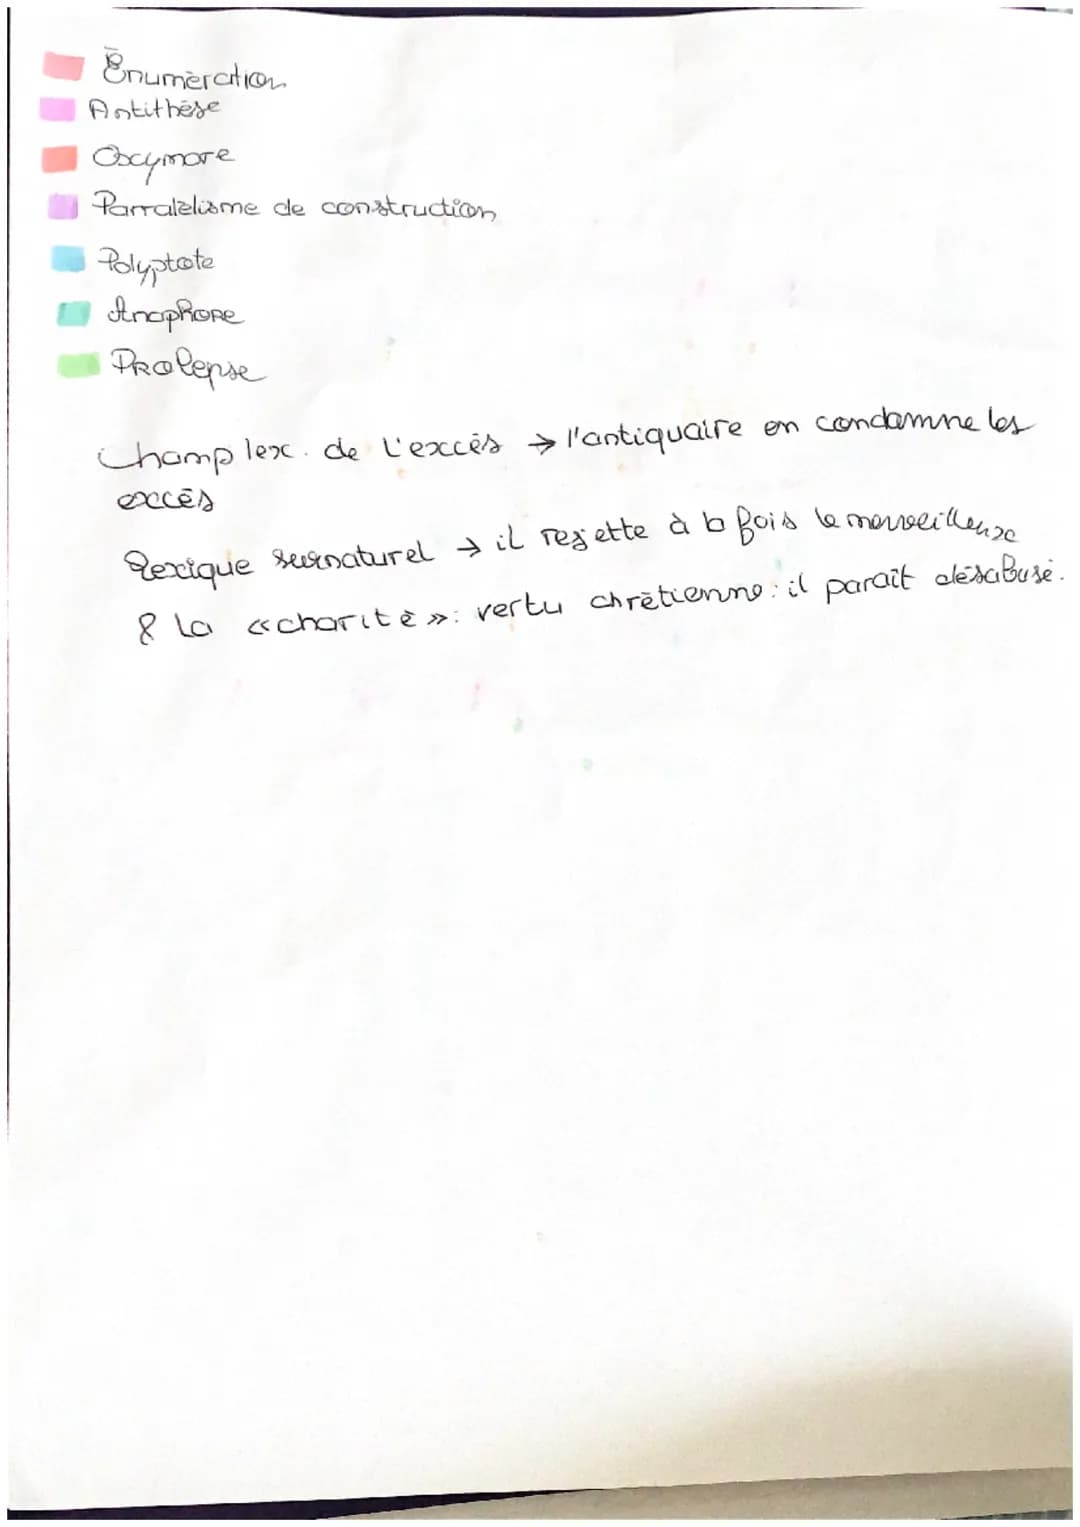 Énumération
Antithèse
Oxymore
Parralèlisme de construction
Polyptote
Anaphore
Prolepse
Champ lex. de l'excès → l'antiquaire en condamne les
excès
Lexique surnaturel → il rejette à la fois le merveilleux
& la «charité»: vertu chrétienne: il paraît désabusé.